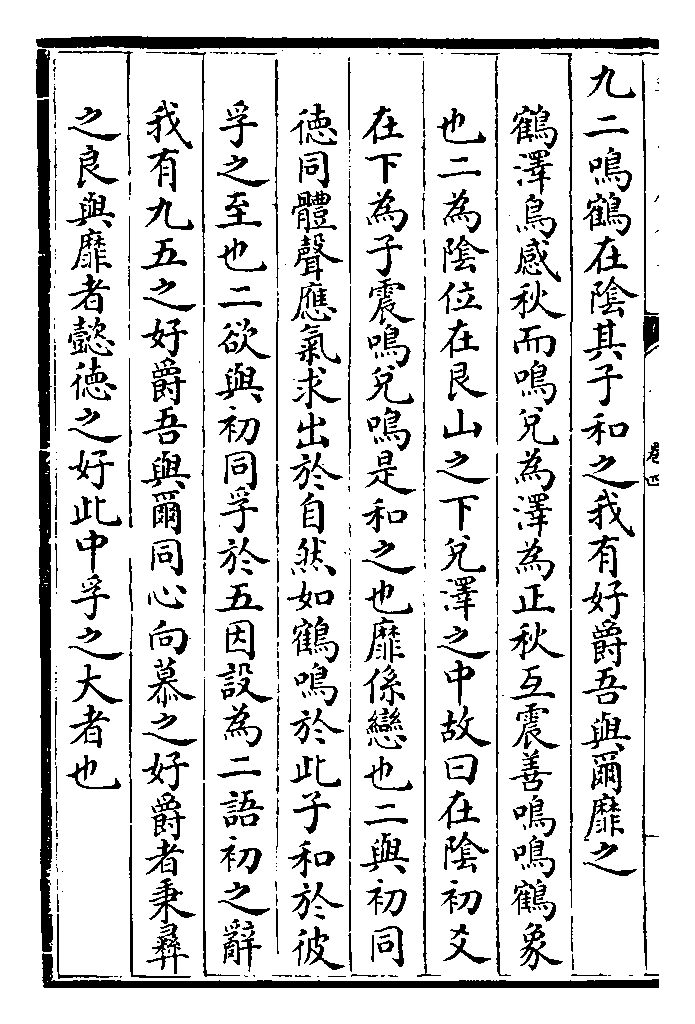 九二鳴鶴在陰其子和之我有好爵吾與爾靡之
鶴澤鳥感秋而鳴兌為澤為正秋互震善鳴鳴鶴象
也二為陰位在艮山之下兌澤之中故曰在陰初爻
在下為子震鳴兌鳴是和之也靡係戀也二與初同
徳同體聲應氣求出於自然如鶴鳴於此子和於彼
孚之至也二欲與初同孚於五因設為二語初之辭
我有九五之好爵吾與爾同心向慕之好爵者秉彛
之良與靡者懿徳之好此中孚之大者也
卷四